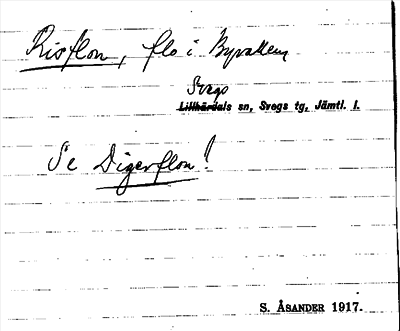 Risflon, flo i Byvallen
Svegs
Lillhärdals sn, Svegs tg, Jämtl. l.
Se Digerflon!
S. ÅSANDER 1917.